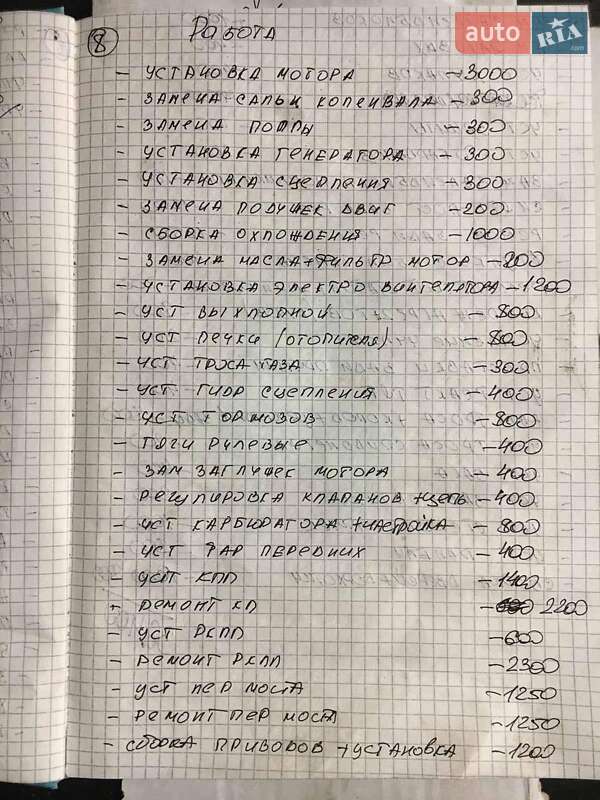 8
Работа
auto RIA.com
- УСТАНОВКА МОТОРА -3000
- ЗАМЕНА САЛЬН КОЛЕНВАЛА -300
- ЗАМЕНА ПОМПЫ -300
- УСТАНОВКА ГЕНЕРАТОРА -300
- УСТАНОВКА СЦЕПЛЕНИЯ -300
- ЗАМЕНА ПОДУШЕК ДВИГ -200
- СБОРКА ОХЛОЖДЕНИЯ -1000
- ЗАМЕНА МАСЛА+ФИЛЬТР МОТОР -200
- УСТАНОВКА ЭЛЕКТРО ВИНТЕЛЯТОРА -1200
- УСТ ВЫХЛОПНОЙ -800
- УСТ ПЕЧКИ (ОТОПИТЕЛЯ) -800
- УСТ ТРОСА ГАЗА -300
- УСТ ГИДР СЦЕПЛЕНИЯ -400
- УСТ ТОРМОЗОВ -800
- ТЯГИ РУЛЕВЫЕ -400
- ЗАМ ЗАГЛУШЕК МОТОРА -400
- РЕГУЛИРОВКА КЛАПАНОВ +ЦЕПЬ -400
- УСТ КАРБЮРАТОРА +НАСТРОЙКА -800
- УСТ ФАР ПЕРЕДНИХ -400
- УСТ КПП -1400
- РЕМОНТ КП - 2200
- УСТ РКПП -600
- РЕМОНТ РКПП -2300
- УСТ ПЕР МОСТА -1250
- РЕМОНТ ПЕР МОСТА -1250
- СБОРКА ПРИВОДОВ +УСТАНОВКА -1200